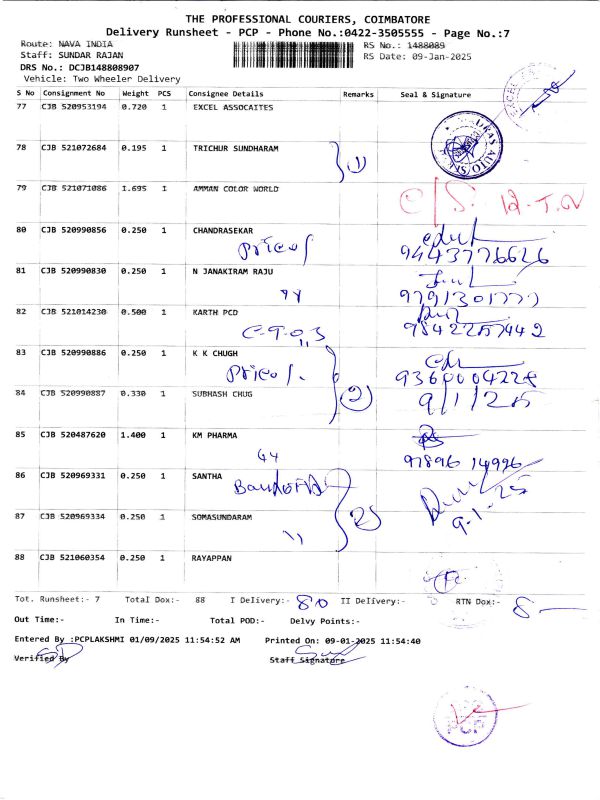 THE PROFESSIONAL COURIERS, COIMBATORE
Delivery Runsheet - PCP - Phone No.:0422-3505555 - Page No.:7
Route: NAVA INDIA
RS No.: 1488089
Staff: SUNDAR RAJAN
RS Date: 09-Jan-2025
DRS No.: DCJB148808907
Vehicle: Two Wheeler Delivery
S No Consignment No Weight PCS Consignee Details Remarks Seal & Signature
77 CJB 520953194 0.720 1 EXCEL ASSOCAITES
78 CJB 521072684 0.195 1 TRICHUR SUNDHARAM
79 CJB 521071086 1.695 1 AMMAN COLOR WORLD
C/S.
80 CJB 520990856 0.250 1 CHANDRASEKAR
9443776626
81 CJB 520990830 0.250 1 N JANAKIRAM RAJU
82 CJB 521014230 0.500 1 KARTH PCD
83 CJB 520990886 0.250 1 K K CHUGH
84 CJB 520990887 0.330 1 SUBHASH CHUG
2
9/1/25
85 CJB 520487620 1.400 1 KM PHARMA
97896 14996
86 CJB 520969331 0.250 1 SANTHA
87 CJB 520969334 0.250 1 SOMASUNDARAM
9-1-25
88 CJB 521060354 0.250 1 RAYAPPAN
Tot. Runsheet:- 7 Total Dox:- 88 I Delivery:- 80 II Delivery:- RTN Dox:- 8
Out Time:- In Time:- Total POD:- Delvy Points:-
Entered By :PCPLAKSHMI 01/09/2025 11:54:52 AM Printed On: 09-01-2025 11:54:40
Verified By Staff Signature
PCP